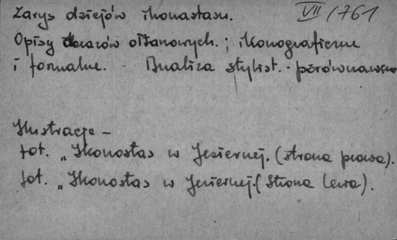 Zarys dziejów ikonostasu. VII/761
Opisy obrazów ołtarzowych.; ikonograficzne
i formalne. Analiza stylist. - porównawcza
Ilustracje -
fot. „Ikonostas w Jeziernej. (strona prawa).
fot. „Ikonostas w Jeziernej. (Strona lewa).